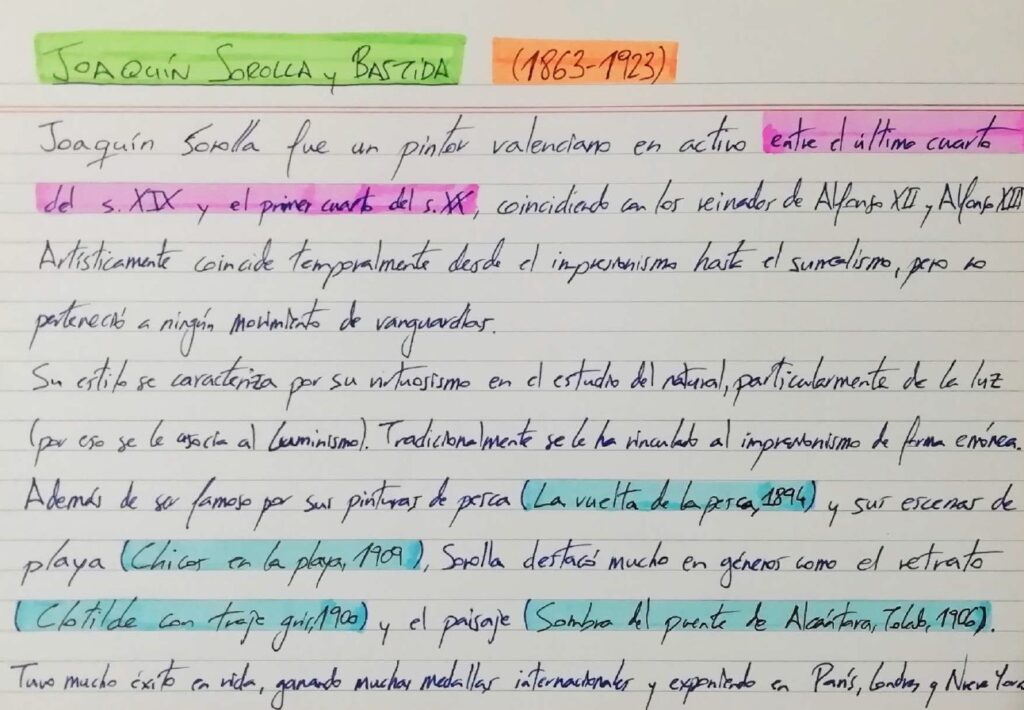 JOAQUÍN SOROLLA y BASTIDA (1863-1923)
Joaquín Sorolla fue un pintor valenciano en activo entre el último cuarto
del s. XIX y el primer cuarto del s. XX, coincidiendo con los reinados de Alfonso XII y Alfonso XIII
Artísticamente coincide temporalmente desde el impresionismo hasta el surrealismo, pero no
perteneció a ningún movimiento de vanguardias.
Su estilo se caracteriza por su virtuosismo en el estudio del natural, particularmente de la luz
(por eso se le asocia al luminismo). Tradicionalmente se le ha vinculado al impresionismo de forma errónea.
Además de ser famoso por sus pinturas de pesca (La vuelta de la pesca, 1894) y sus escenas de
playa (Chicos en la playa, 1909), Sorolla destacó mucho en géneros como el retrato
(Clotilde con traje gris, 1900) y el paisaje (Sombra del puente de Alcántara, Toledo, 1906).
Tuvo mucho éxito en vida, ganando muchas medallas internacionales y exponiendo en París, Londres y Nueva York